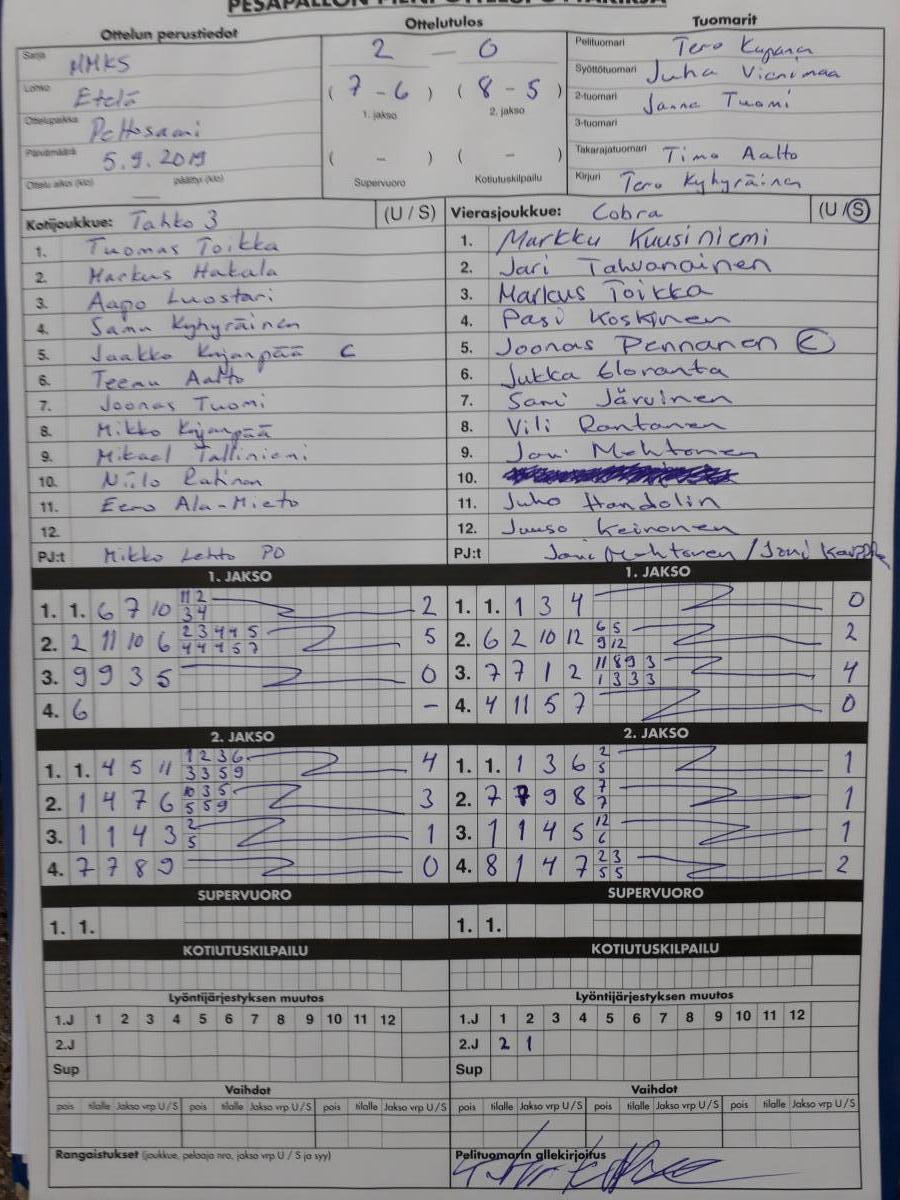 PESÄPALLON PIENI OTTELUPÖYTÄKIRJA
Ottelun perustiedot
Sarja MMKS
Lohko Etelä
Ottelupaikka Pettosaari
Päivämäärä 5.9.2019
Ottelu alkoi (klo) päättyi (klo)
Ottelutulos
2 — 0
( 7 - 6 ) ( 8 - 5 )
1. jakso 2. jakso
( - ) ( - )
Supervuoro Kotiutuskilpailu
Tuomarit
Pelituomari Tero
Syöttötuomari Juha Vienimaa
2-tuomari Janne Tuomi
3-tuomari
Takarajatuomari Timo Aalto
Kirjuri Tero Kyhyräinen
Kotijoukkue: Tahko 3 (U / S)
1. Tuomas Toikka
2. Markus Hakala
3. Aapo Luostari
4. Samu Kyhyräinen
5. Jaakko Kujanpää C
6. Teemu Aalto
7. Joonas Tuomi
8. Mikko Kujanpää
9. Mikael Talliniemi
10. Niilo Ratinen
11. Eero Ala-Mieto
12.
PJ:t Mikko Lehto PO
Vierasjoukkue: Cobra (U / S)
1. Markku Kuusiniemi
2. Jari Tahvanainen
3. Markus Toikka
4. Pasi Koskinen
5. Joonas Pennanen C
6. Jukka Eloranta
7. Sami Järvinen
8. Vili Rantanen
9. Joni Mehtonen
10.
11. Juho Handolin
12. Juuso Keinonen
PJ:t Joni Mehtonen / Joni
1. JAKSO
1. 1. 6 7 10 11 2 2
3 4
2. 2 11 10 6 2 3 4 4 5 5
4 4 4 5 7
3. 9 9 3 5 0
4. 6 -
1. JAKSO
1. 1. 1 3 4 0
2. 6 2 10 12 6 5 2
9 12
3. 7 7 1 2 11 8 9 3 4
1 3 3 3
4. 4 11 5 7 0
2. JAKSO
1. 1. 4 5 11 1 2 3 6 4
3 3 5 9
2. 1 4 7 6 10 3 5 3
5 5 9
3. 1 1 4 3 2 1
5
4. 7 7 8 9 0
2. JAKSO
1. 1. 1 3 6 2 1
5
2. 7 7 9 8 7 1
7
3. 1 1 4 5 12 1
6
4. 8 1 4 7 2 3 2
5 5
SUPERVUORO
1. 1.
SUPERVUORO
1. 1.
KOTIUTUSKILPAILU
KOTIUTUSKILPAILU
Lyöntijärjestyksen muutos
1.J 1 2 3 4 5 6 7 8 9 10 11 12
2.J
Sup
Lyöntijärjestyksen muutos
1.J 1 2 3 4 5 6 7 8 9 10 11 12
2.J 2 1
Sup
Vaihdot
pois tilalle Jakso vrp U / S pois tilalle Jakso vrp U / S pois tilalle Jakso vrp U / S
Vaihdot
pois tilalle Jakso vrp U / S pois tilalle Jakso vrp U / S pois tilalle Jakso vrp U / S
Rangaistukset (joukkue, pelaaja nro, jakso vrp U / S ja syy)
Pelituomarin allekirjoitus